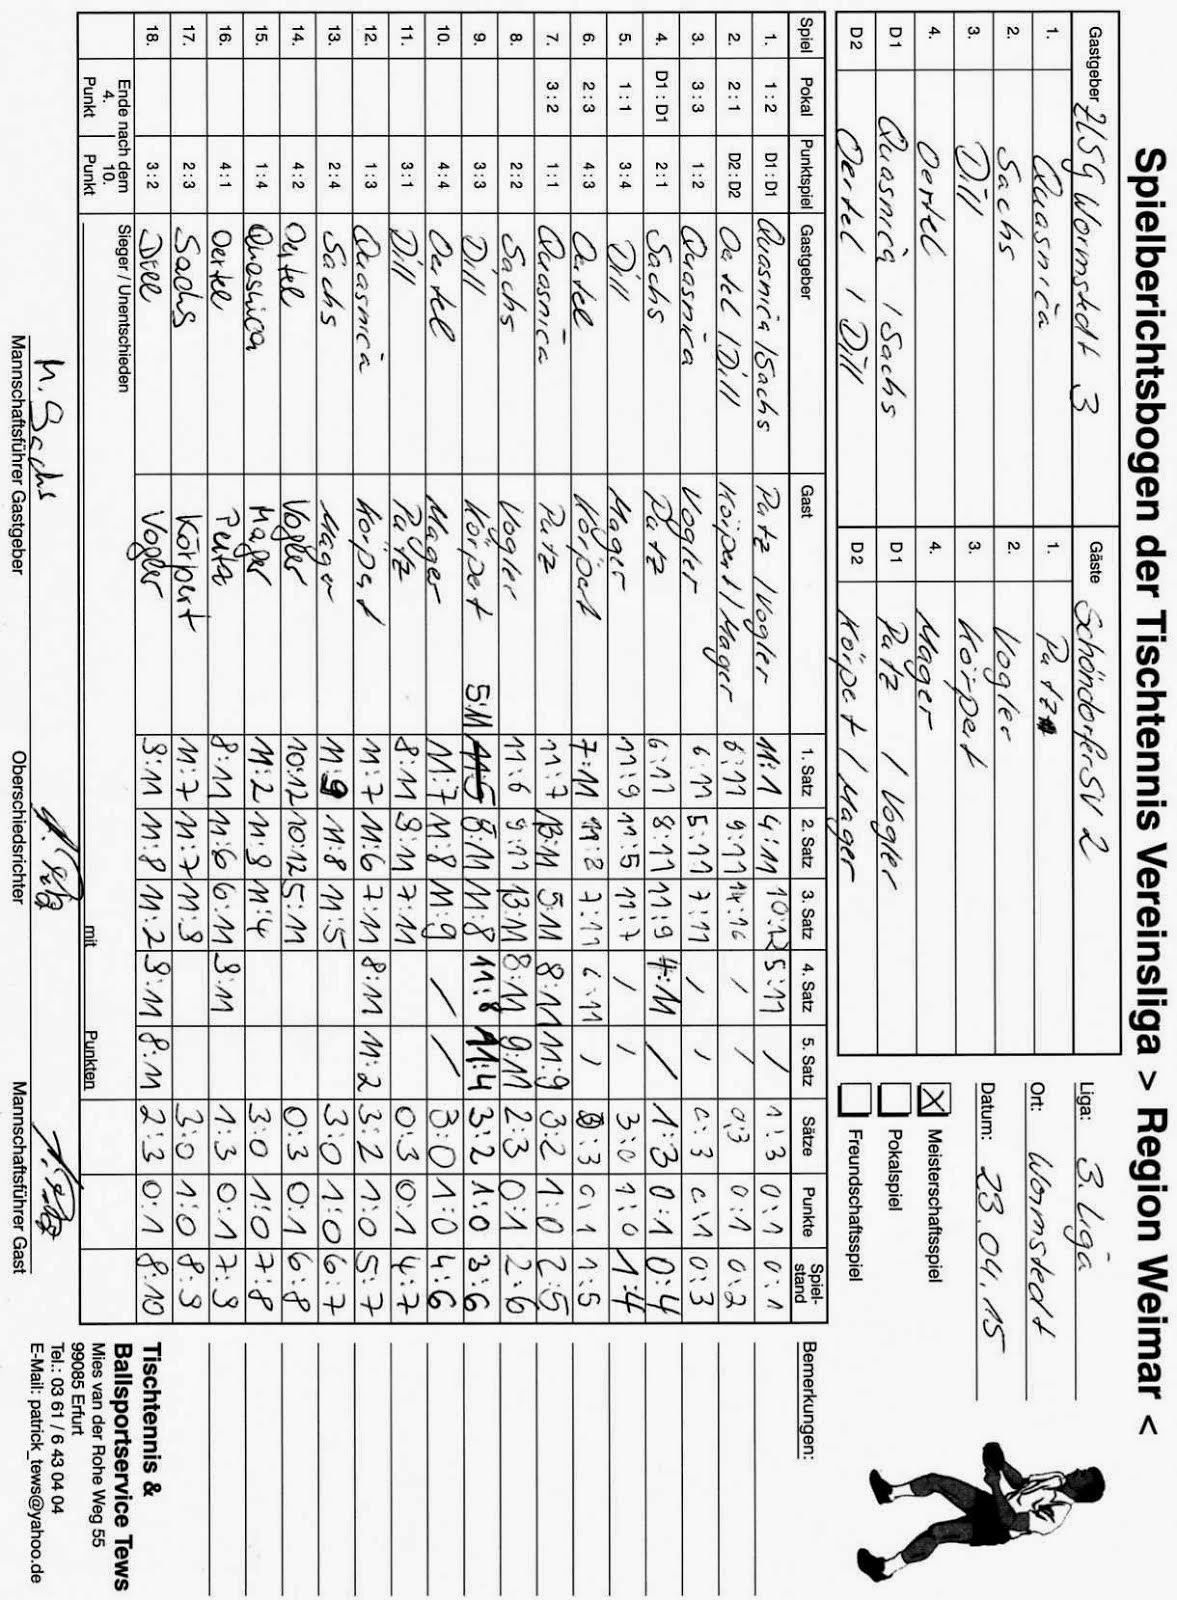 Spielberichtsbogen der Tischtennis Vereinsliga > Region Weimar <
Gastgeber HSG Wormstedt 3 Gäste Schöndorfer SV 2
1. Quasnica 1. Patz
2. Sachs 2. Vogler
3. Dill 3. Körpert
4. Oertel 4. Mager
D1 Quasnica / Sachs D1 Patz / Vogler
D2 Oertel / Dill D2 Körpert / Mager
Liga: 3. Liga
Ort: Wormstedt
Datum: 23.04.15
X Meisterschaftsspiel
Pokalspiel
Freundschaftsspiel
Spiel Pokal Punktspiel Gastgeber Gast 1. Satz 2. Satz 3. Satz 4. Satz 5. Satz Sätze Punkte Spielstand Bemerkungen:
1. 1:2 D1:D1 Quasnica / Sachs Patz / Vogler 11:1 4:11 10:12 5:11 / 1:3 0:1 0:1
2. 2:1 D2:D2 Oertel / Dill Körpert / Mager 6:11 9:11 14:16 / / 0:3 0:1 0:2
3. 3:3 1:2 Quasnica Vogler 6:11 5:11 7:11 / / 0:3 0:1 0:3
4. D1:D1 2:1 Sachs Patz 6:11 8:11 11:9 4:11 / 1:3 0:1 0:4
5. 1:1 3:4 Dill Mager 11:9 11:5 11:7 / / 3:0 1:0 1:4
6. 2:3 4:3 Oertel Körpert 7:11 7:11 6:11 / :3 0:1 1:5
7. 3:2 1:1 Quasnica Patz 11:7 13:11 5:11 8:11 11:9 3:2 1:0 2:5
8. 2:2 Sachs Vogler 11:6 9:11 13:11 8:11 9:11 2:3 0:1 2:6
9. 3:3 Dill Körpert 5:11 8:11 11:8 11:8 11:4 3:2 1:0 3:6
10. 4:4 Oertel Mager 11:7 11:8 11:9 / / 3:0 1:0 4:6
11. 3:1 Dill Patz 8:11 9:11 7:11 0:3 0:1 4:7
12. 1:3 Quasnica Körpert 11:7 11:6 7:11 8:11 11:2 3:2 1:0 5:7
13. 2:4 Sachs Mager 11:9 11:8 11:5 3:0 1:0 6:7
14. 4:2 Oertel Vogler 10:12 10:12 5:11 0:3 0:1 6:8
15. 1:4 Quasnica Mager 11:2 11:9 11:4 3:0 1:0 7:8
16. 4:1 Oertel Patz 8:11 11:6 6:11 9:11 1:3 0:1 7:9
17. 2:3 Sachs Körpert 11:7 11:7 11:9 3:0 1:0 8:9
18. 3:2 Dill Vogler 9:11 11:8 11:2 9:11 8:11 2:3 0:1 8:10
Ende nach dem
4. 10.
Punkt Punkt
Sieger / Unentschieden mit Punkten
M. Sachs
Mannschaftsführer Gastgeber Oberschiedsrichter Mannschaftsführer Gast
Tischtennis &
Ballsportservice Tews
Mies van der Rohe Weg 55
99085 Erfurt
Tel.: 03 61 / 6 43 04 04
E-Mail: patrick_tews@yahoo.de